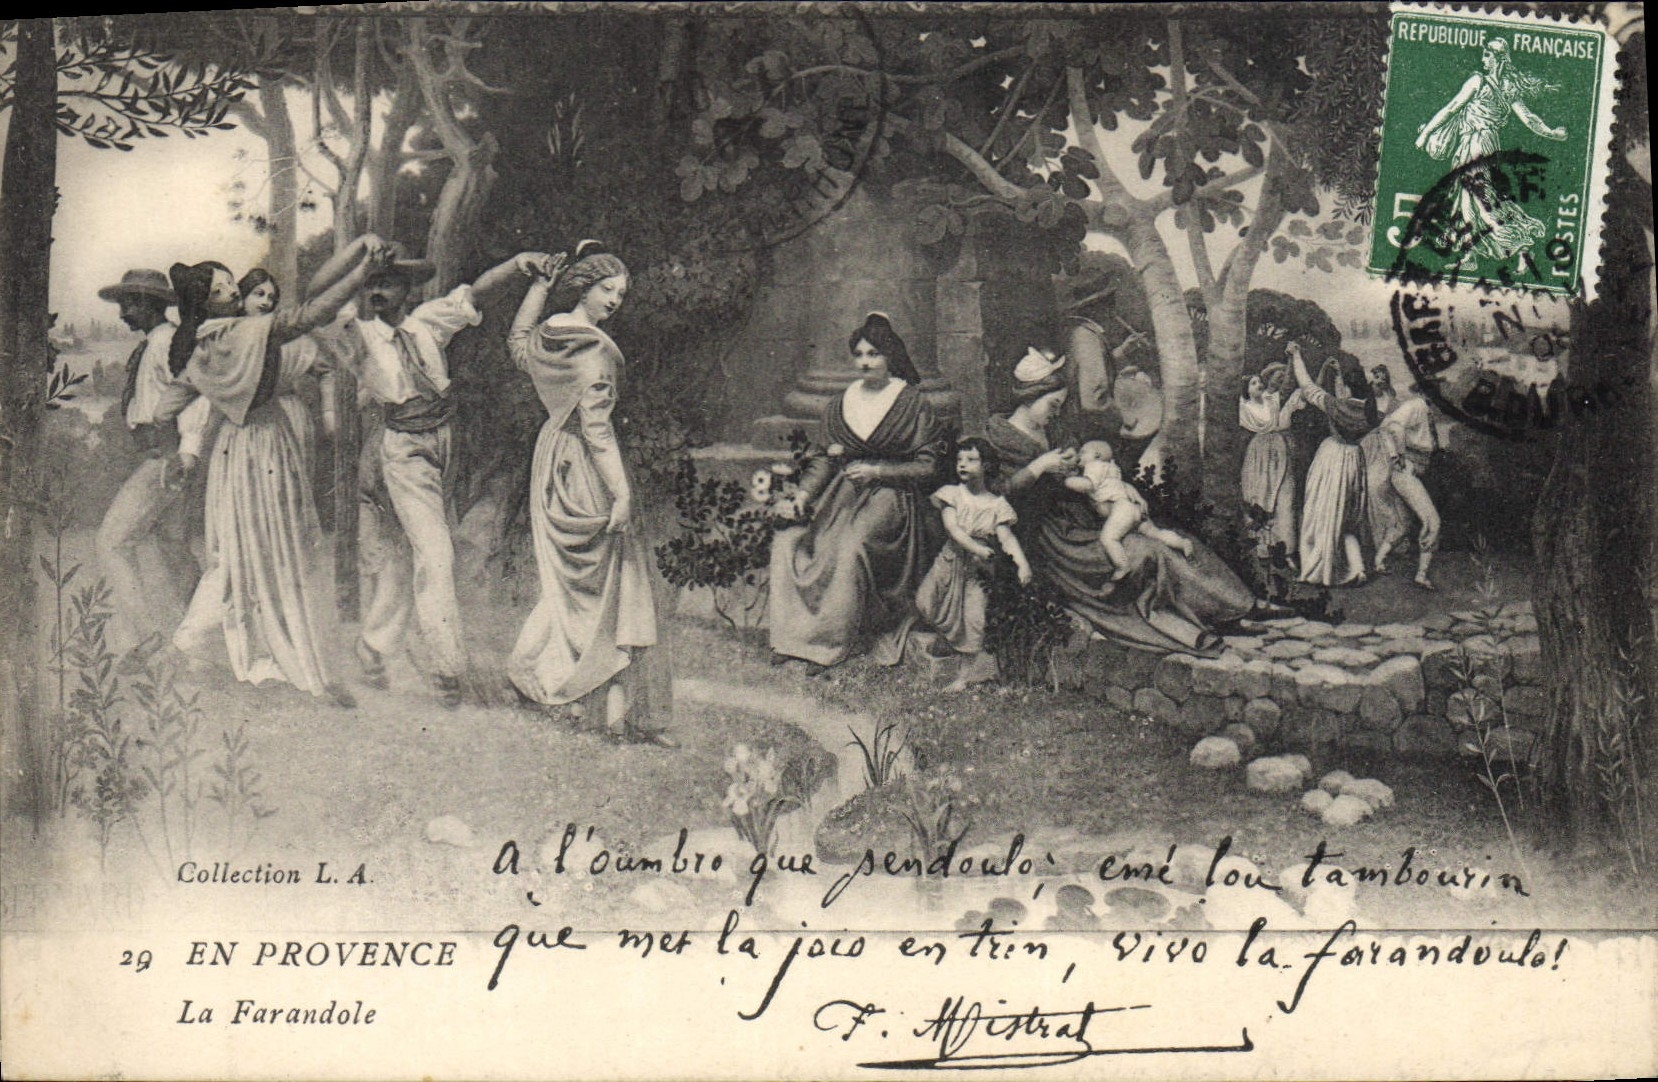 REPUBLIQUE FRANÇAISE
5
POSTES
A l'oumbro que pendoulo, emé lou tambourin
que met la joio en trin, vivo la farandoulo!
F. Mistral
Collection L. A.
29 EN PROVENCE
La Farandole